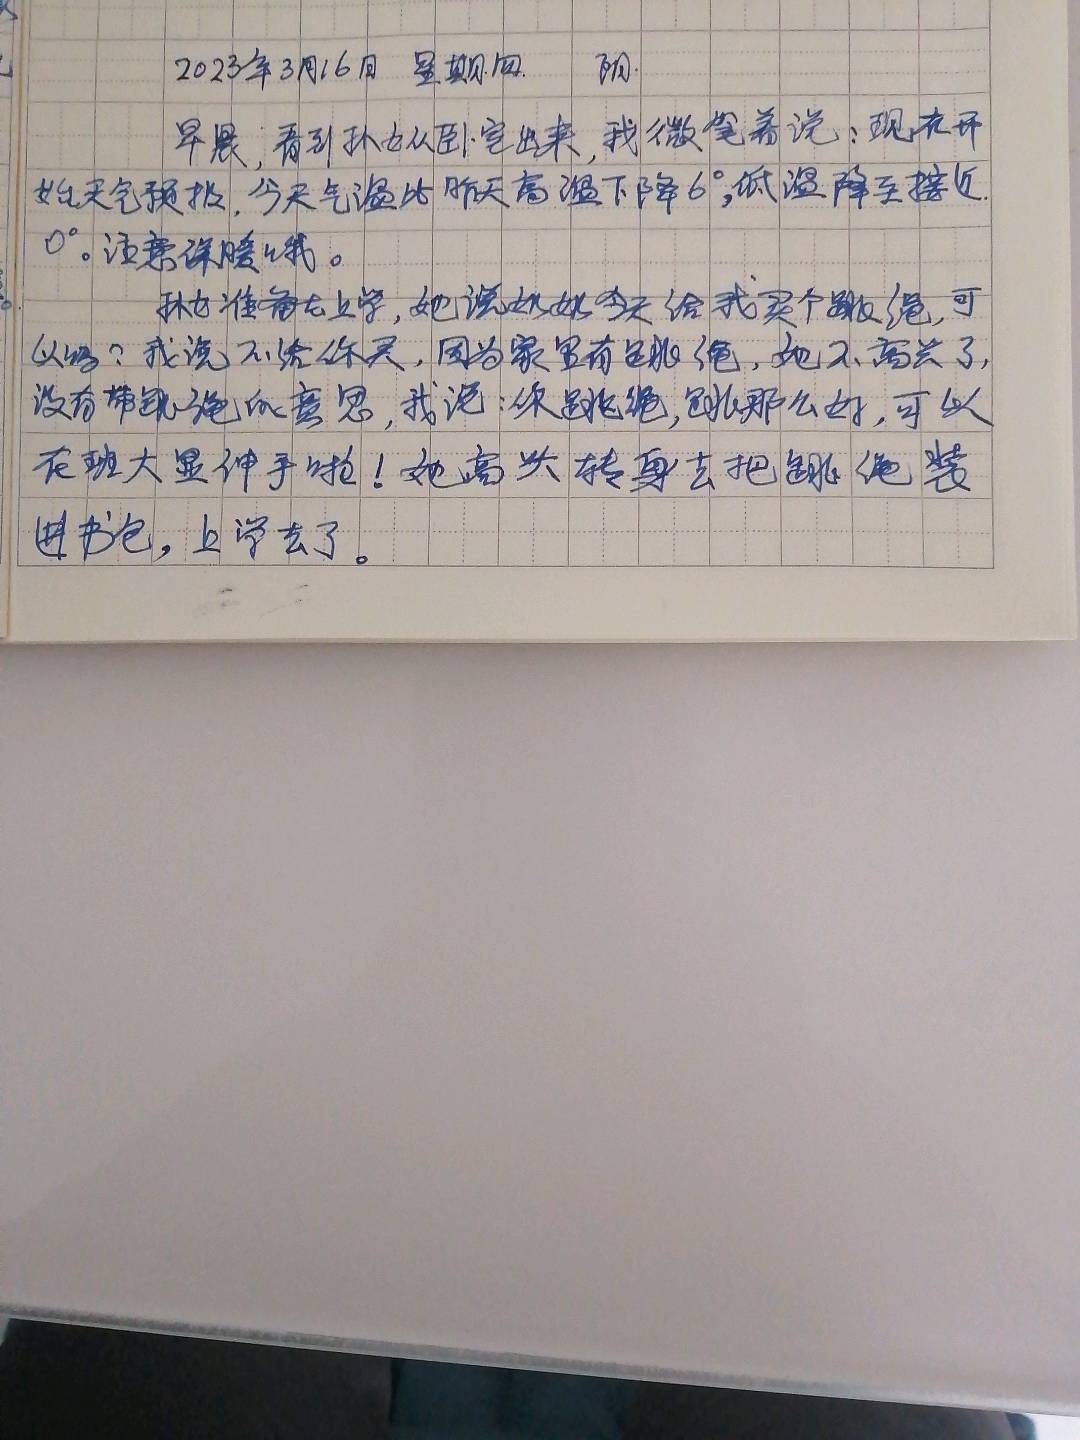 2023年3月16日 星期四 阴
早晨,看到孙女从卧室出来,我微笔着说:现在开
始天气预报,今天气温比昨天高温下降6°,低温降至接近
0°。注意保暖哦。
孙女准备去上学,她说奶奶今天给我买个跳绳,可
以吗?我说不给你买,因为家里有跳绳,她不高兴了,
没有带跳绳的意思,我说:你跳绳,跳那么好,可以
在班大显伸手啦!她高兴转身去把跳绳装
进书包,上学去了。